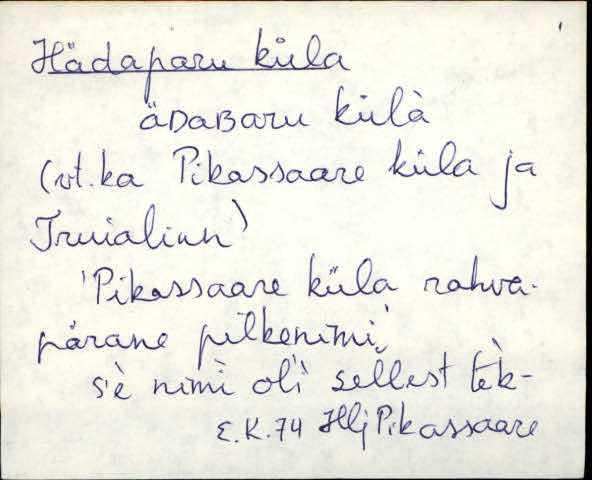 Hädaparu küla
äDaBaru külà
(vt.ka Pikassaare küla ja
Truialinn)
'Pikassaare küla rahva-
pärane pilkenimi,'
s'è nimì ol'i sellest tèk-
E.K.74 Hlj Pikassaare